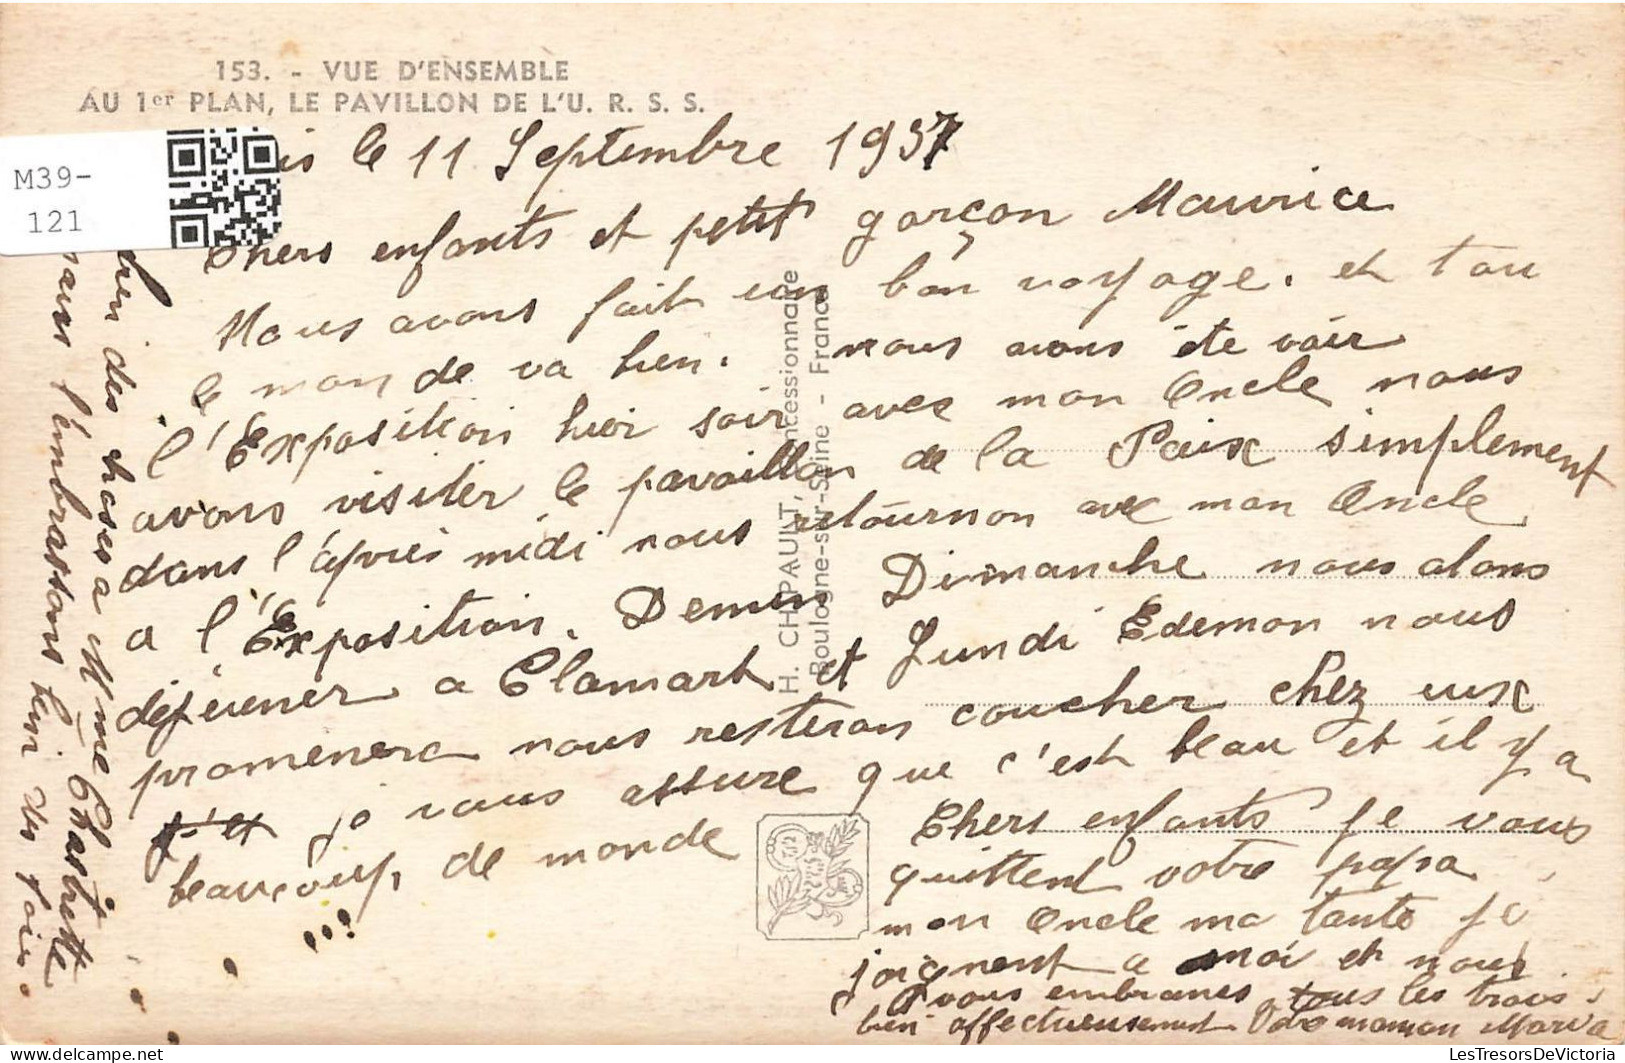 153. - VUE D'ENSEMBLE
AU 1er PLAN, LE PAVILLON DE L'U. R. S. S.
M39-
121
is le 11 Septembre 1937
Chers enfants et petit garçon Maurice
Nous avons fait un bon voyage. et tou
le monde va bien. nous avons été voir
l'Exposition hier soir avec mon Oncle nous
avons visiter le pavaillon de la Paix simplement
dans l'après midi nous retournon avec mon Oncle
a l'Exposition. Demin Dimanche nous alons
déjeuner a Clamart et Lundi Edemon nous
promenera nous resteron coucher chez eux
j'et je vous assure que c'est beau et il y a
beaucoup de monde
...
Chers enfants je vous
quittent votre papa
mon Oncle ma tante se
joignent a moi et nous
vous embrasses tous les trois.
bien affectueusement Votre maman Maria
bien des choses a Mme Chastrette
l'embrassons bien des fois.
H. CHIPAULT, Concessionnaire
Boulogne-sur-Seine - France
LesTresorsDeVictoria
delcampe.net